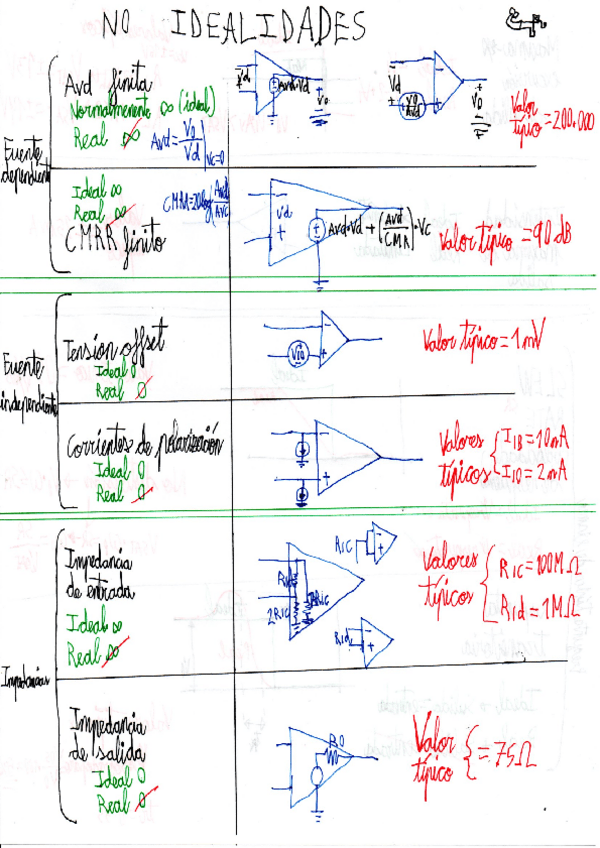 NO IDEALIDADES
Fuente dependiente
Avd finita
Normalmente ∞ (ideal)
Real ∞
Avd = Vo/Vd | Vc=0
Vd
Avd·Vd
Vo
Vd
Vo/Avd
Vo
Valor típico = 200.000
Ideal ∞
Real ∞
CMRR finito
CMRR=20log(Avd/Avc)
Vd
Avd·Vd + (Avd/CMR)·Vc
Valor típico = 90 dB
Fuente independiente
Tension offset
Ideal 0
Real 0
Vio
Valor típico = 1mV
Corrientes de polarización
Ideal 0
Real 0
Valores típicos
IIB = 10nA
IIO = 2nA
Impedancias
Impedancia de entrada
Ideal ∞
Real ∞
Ric
Rid
2Ric
2Ric
Rid
Valores típicos
Ric = 100MΩ
Rid = 1MΩ
Impedancia de salida
Ideal 0
Real 0
RO
Valor típico = 75Ω